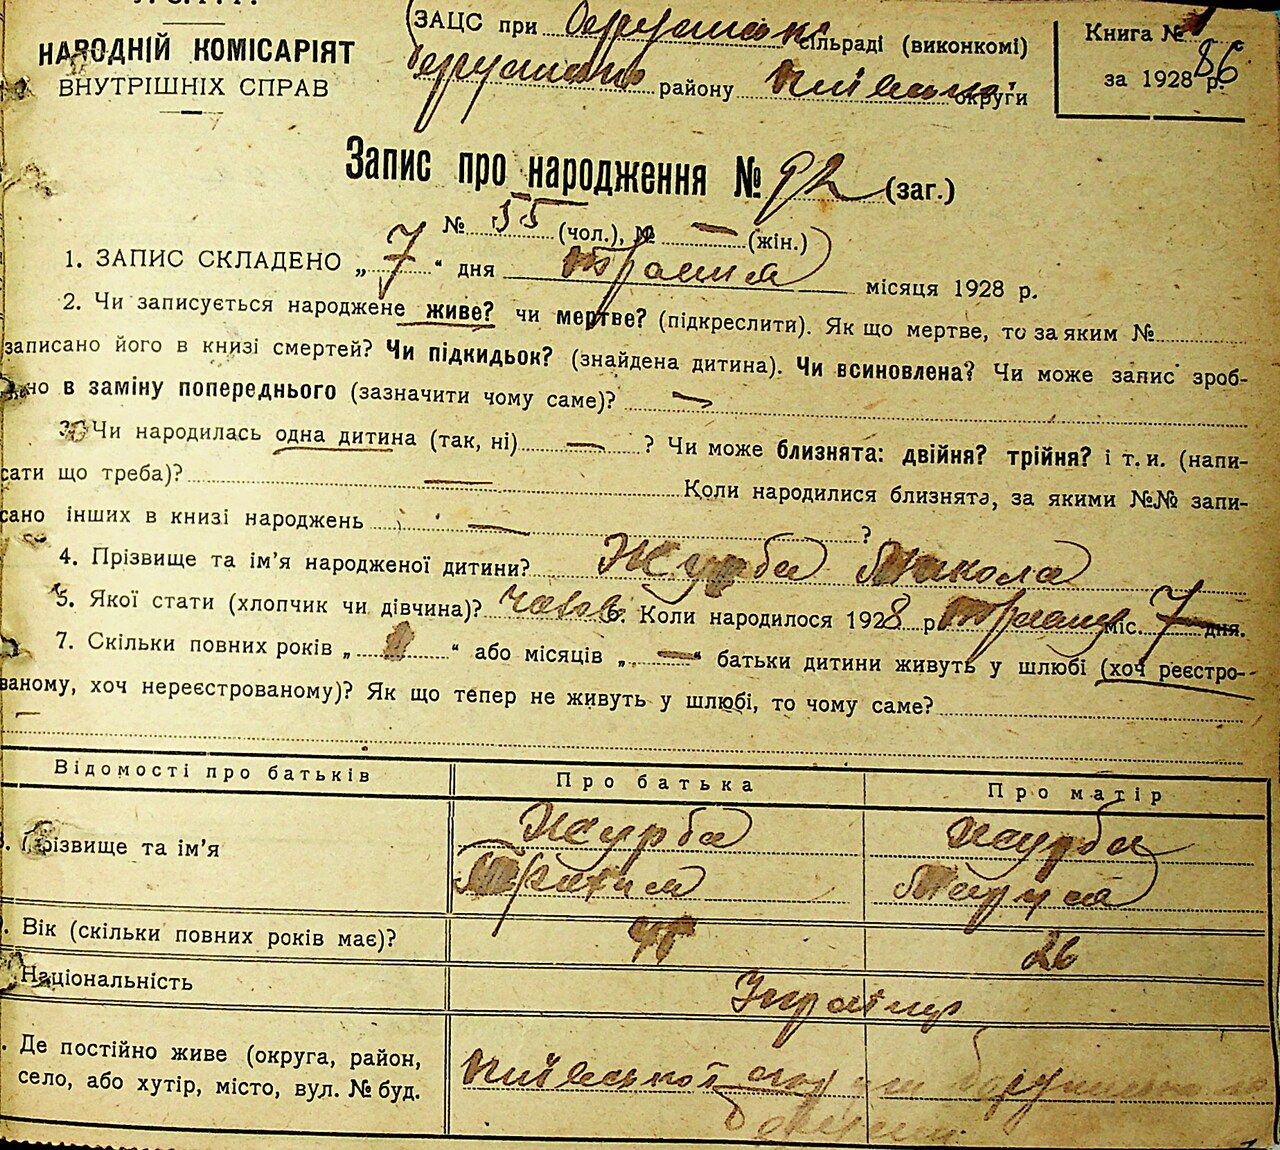 НАРОДНІЙ КОМІСАРІЯТ
ВНУТРІШНІХ СПРАВ
(ЗАЦС при сільраді (виконкомі)
району округи
Книга №
за 1928 р.
86
Запис про народження № 92 (заг.)
№ 55 (чол.), № — (жін.)
1. ЗАПИС СКЛАДЕНО „ 7 “ дня травня місяця 1928 р.
2. Чи записується народжене живе? чи мертве? (підкреслити). Як що мертве, то за яким №
записано його в книзі смертей? Чи підкидьок? (знайдена дитина). Чи всиновлена? Чи може запис зроб-
но в заміну попереднього (зазначити чому саме)? —
3. Чи народилась одна дитина (так, ні) — ? Чи може близнята: двійня? трійня? і т. и. (напи-
сати що треба)? — Коли народилися близнята, за якими №№ запи-
сано інших в книзі народжень — ?
4. Прізвище та ім’я народженої дитини? Журба Микола
5. Якої стати (хлопчик чи дівчина)? 6. Коли народилося 1928 р. травня міс. 7 дня.
7. Скільки повних років „ “ або місяців „ — “ батьки дитини живуть у шлюбі (хоч реєстро-
ваному, хоч нереєстрованому)? Як що тепер не живуть у шлюбі, то чому саме?
—
Відомості про батьків Про батька Про матір
Прізвище та ім’я Журба Журба
Маруся
Вік (скільки повних років має)? 26
Національність Українці
Де постійно живе (округа, район, Київської
село, або хутір, місто, вул. № буд.